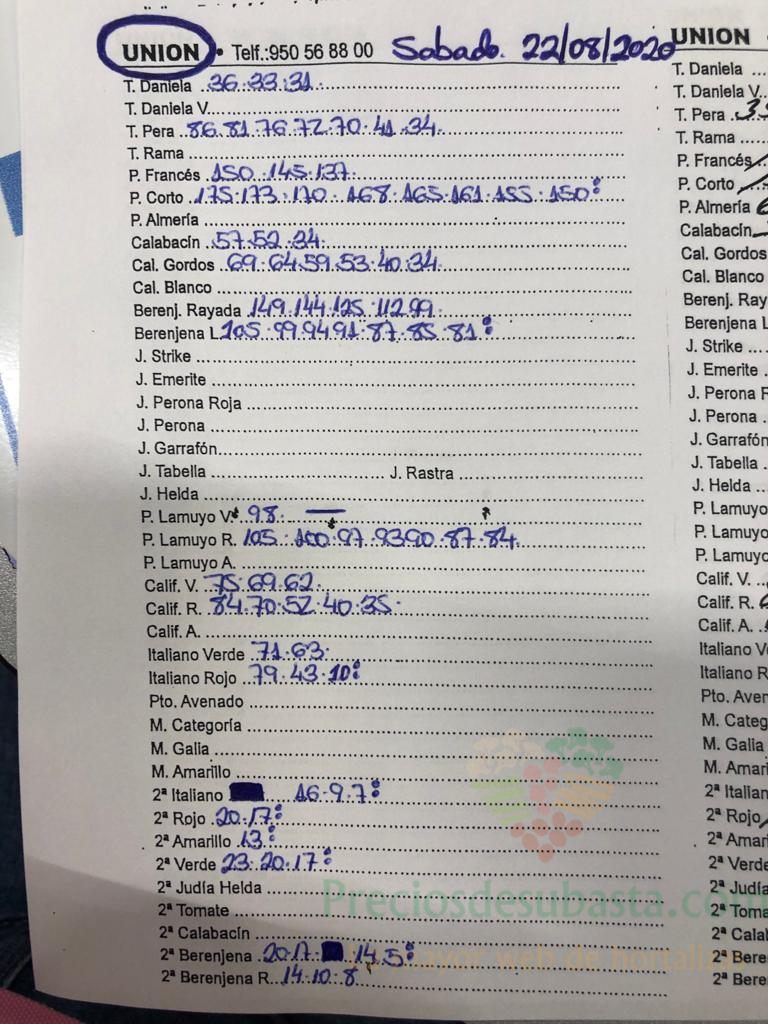 UNION • Telf.:950 56 88 00 Sabado. 22/08/2020
T. Daniela 36.33.31.
T. Daniela V.
T. Pera 86.81.76.72.70.41.34.
T. Rama
P. Francés 150.145.137.
P. Corto 175.173.170.168.165.161.155.150:
P. Almería
Calabacín 57.52.34.
Cal. Gordos 69.64.59.53.40.34.
Cal. Blanco
Berenj. Rayada 149.144.125.112.99.
Berenjena L 105.99.94.91.87.85.81:
J. Strike
J. Emerite
J. Perona Roja
J. Perona
J. Garrafón
J. Tabella J. Rastra
J. Helda
P. Lamuyo V. 98. —
P. Lamuyo R. 105.100.97.93.90.87.84.
P. Lamuyo A.
Calif. V. 75.69.62.
Calif. R. 84.70.52.40.35.
Calif. A.
Italiano Verde 71.63.
Italiano Rojo 79.43.10:
Pto. Avenado
M. Categoría
M. Galia
M. Amarillo
2ª Italiano 16.9.7:
2ª Rojo 20.17:
2ª Amarillo 13:
2ª Verde 23.20.17:
2ª Judía Helda
2ª Tomate
2ª Calabacín
2ª Berenjena 20.17. 14.5:
2ª Berenjena R. 14.10.8.
UNION
T. Daniela
T. Daniela V.
T. Pera
T. Rama
P. Francés
P. Corto
P. Almería
Calabacín
Cal. Gordos
Cal. Blanco
Berenj. Ray
Berenjena L
J. Strike
J. Emerite
J. Perona R
J. Perona
J. Garrafón
J. Tabella
J. Helda
P. Lamuyo
P. Lamuyo
P. Lamuyo
Calif. V.
Calif. R.
Calif. A.
Italiano Ve
Italiano R
Pto. Aven
M. Categ
M. Galia
M. Amari
2ª Italian
2ª Rojo
2ª Amar
2ª Verde
2ª Judía
2ª Toma
2ª Calal
2ª Bere
2ª Bere
Preciosdesubasta.com
mayor web de hortaliz